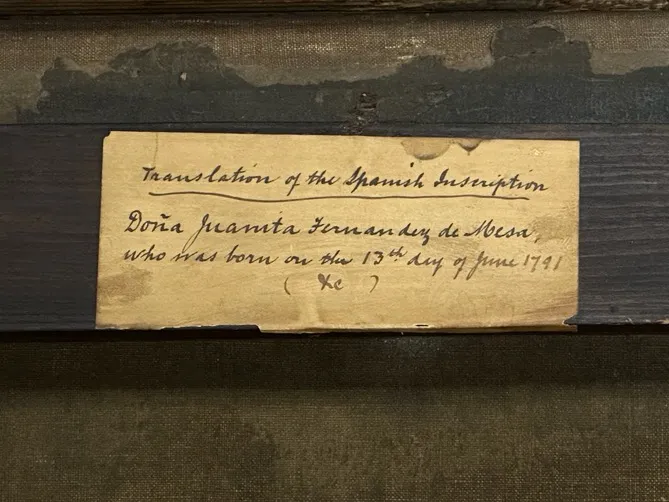 Translation of the Spanish Inscription
Doña Juanita Fernandez de Mesa,
who was born on the 13th day of June 1791
( &c )